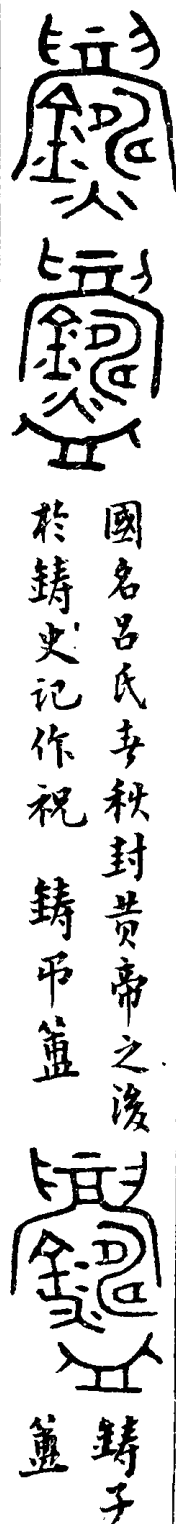 國名呂氏春秋封黃帝之後
於鑄史記作祝　鑄弔簠
鑄子
簠